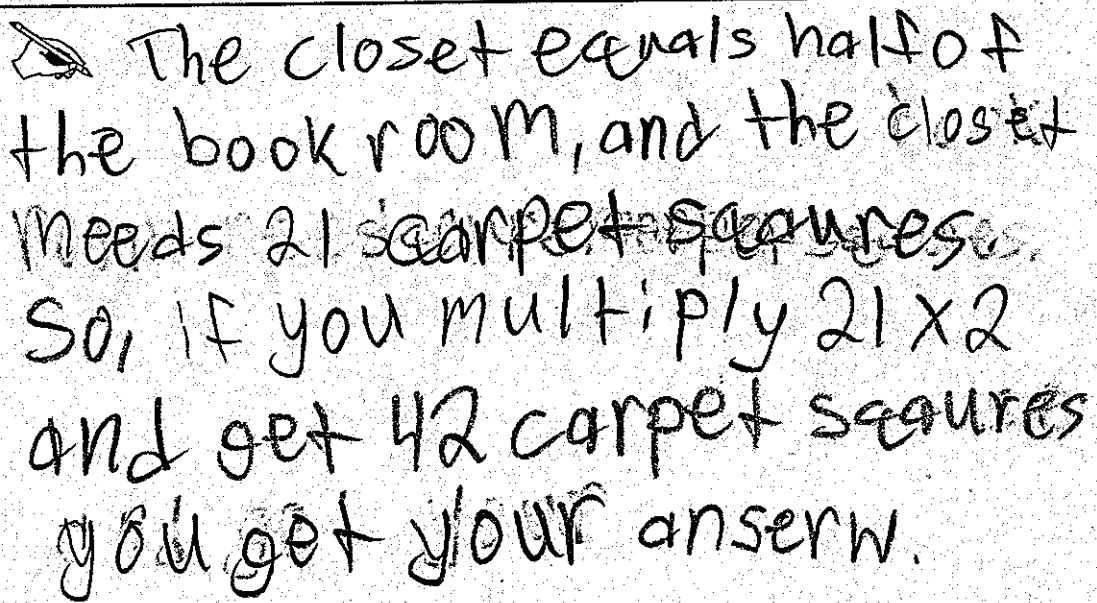 The closet equals half of
the book room, and the closet
needs 21 carpet sqaures.
So, if you multiply 21 x 2
and get 42 carpet sqaures
you get your anserw.